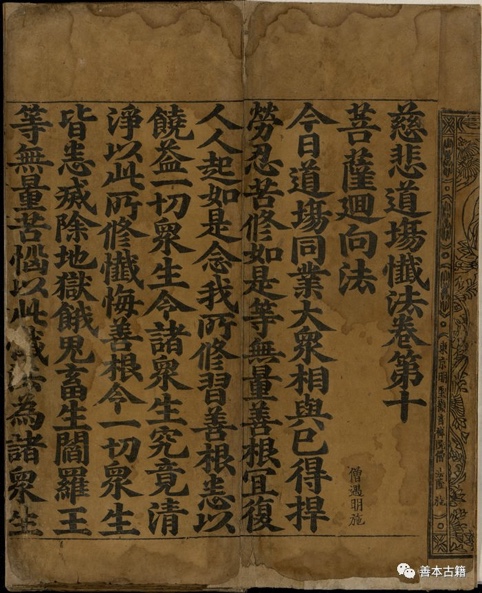 慈悲道塲懺法卷第十
菩薩迴向法
僧遇明施
今日道塲同業大衆相與已得捍
勞忍苦修如是等無量善根宜復
人人起如是念我所修習善根悉以
饒益一切衆生令諸衆生究竟清
淨以此所修懺悔善根令一切衆生
皆悉滅除地獄餓鬼畜生閻羅王
等無量苦惱以此懺法為諸衆生
善本古籍